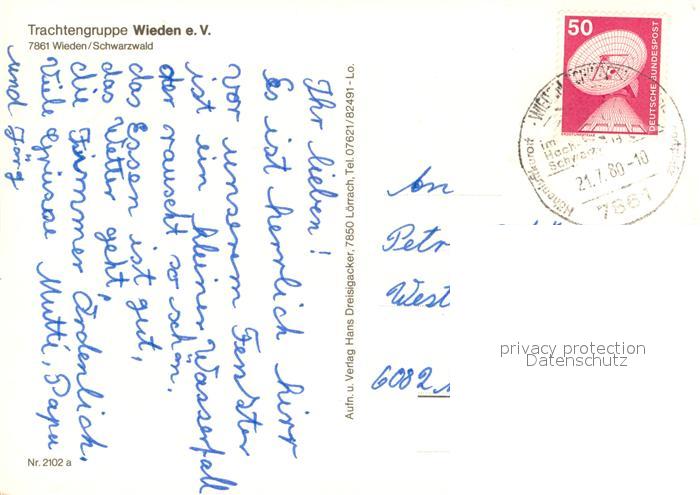 Trachtengruppe Wieden e. V.
7861 Wieden/Schwarzwald
Ihr lieben!
Es ist herrlich hirr
vor unserem Fenster
ist ein kleiner Wasserfall
der rauscht so schön.
das Essen ist gut,
das Wetter geht,
die Zimmer Ordenlich.
Viele Grüsse Mutti, Papa
und Jörg
Nr. 2102 a
Aufn. u. Verlag Hans Dreisigacker, 7850 Lörrach, Tel. 07621/82491 - Lo.
50
DEUTSCHE BUNDESPOST
im
Hoch
Schwarz
21.7.80-10
7861
An
Petr
West
6082
privacy protection
Datenschutz